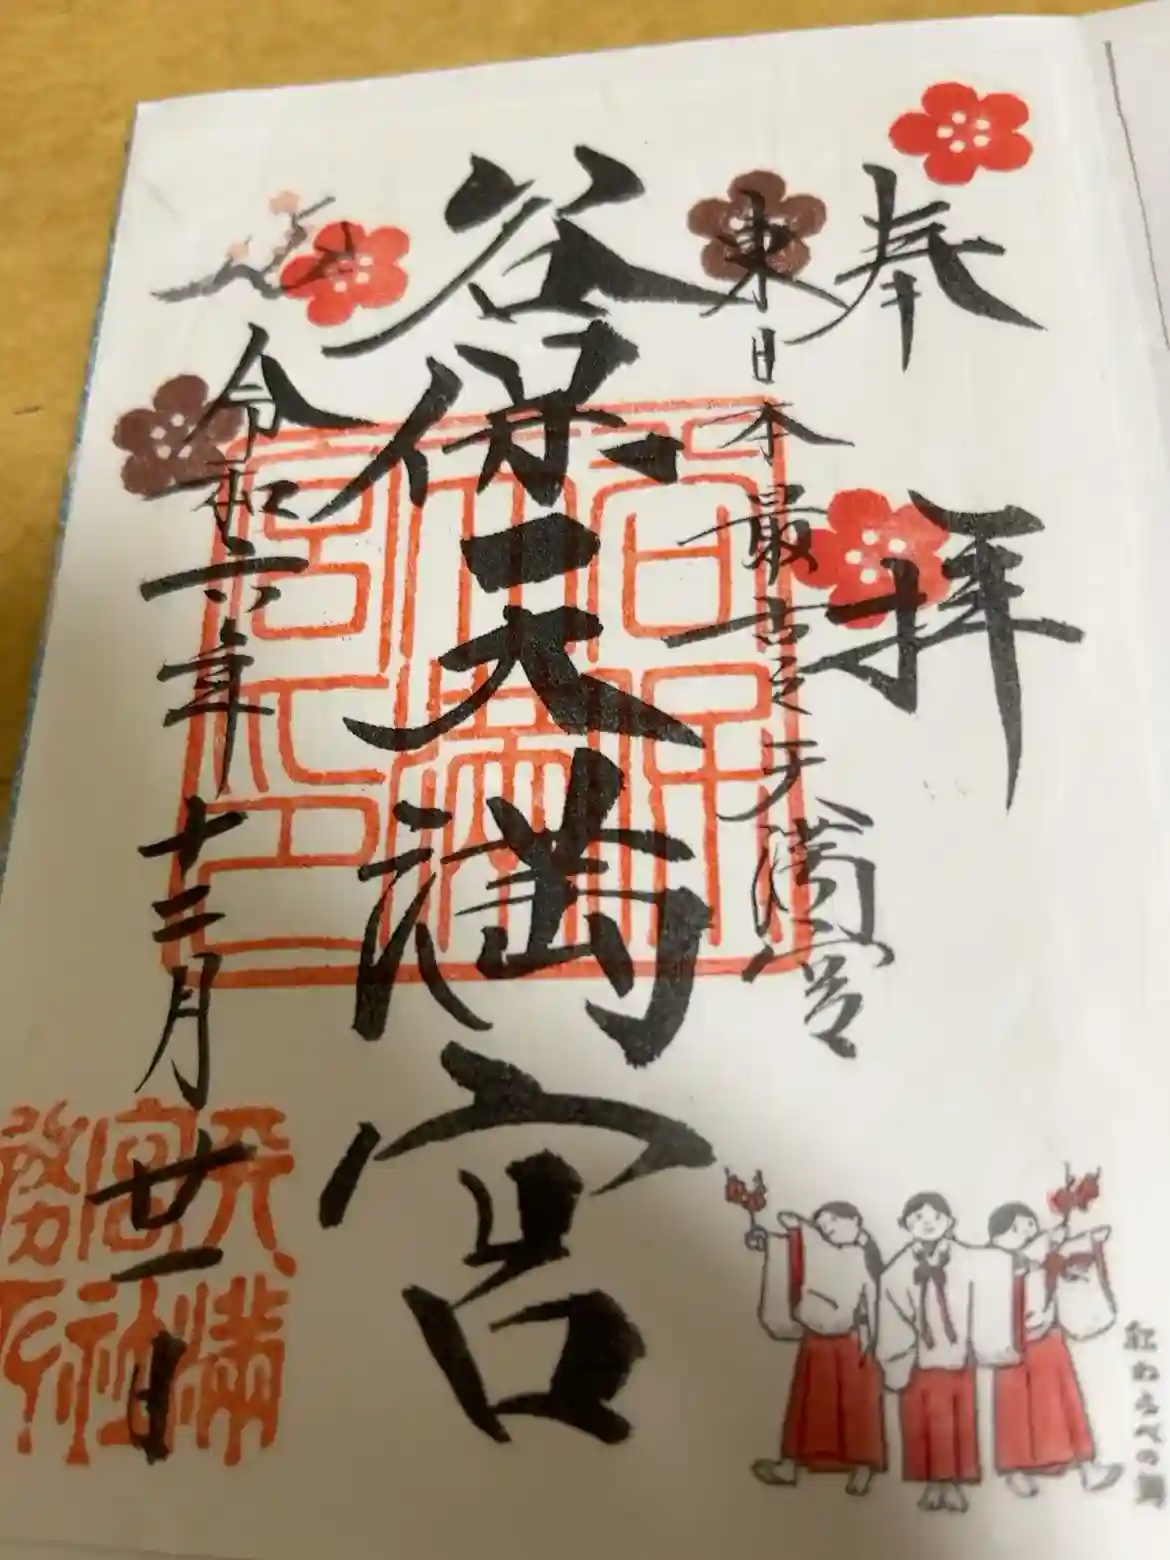 奉拝
東日本最古之天満宮
谷保天満宮
令和六年十二月廿一日
谷保
天満
宮印
天満
宮社
務所
紅わらべの舞